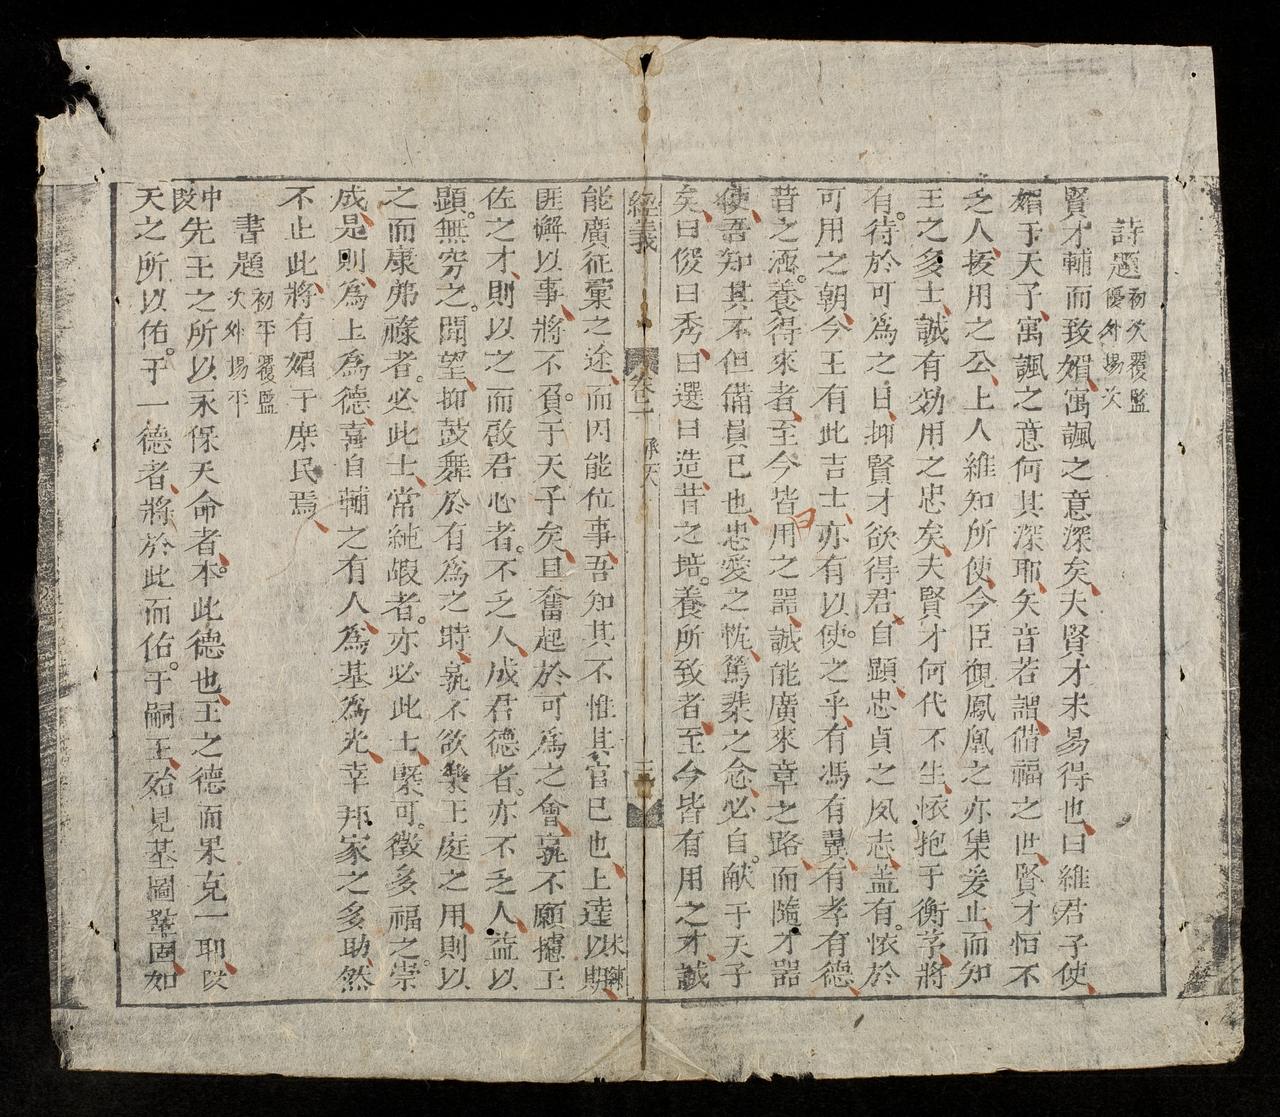 詩題 初次覆監優外場次
賢才輔而致媚寓諷之意深矣夫賢才未易得也曰維君子使
媚于天子寓諷之意何其深耶矢音若謂備福之世賢才恒不
乏人掄用之公上人維知所使今臣覩鳳凰之亦集爰止而知
王之多士誠有効用之忠矣夫賢才何代不生懷抱于衡茅將
有待於可為之日抑賢才欲得君自顯忠貞之夙志蓋有懷於
可用之朝今王有此吉士亦有以使之乎有馮有翼有孝有德
昔之涵養得來者至今皆用之器誠能廣來章之路而隨才器
使吾知其不但備員已也忠愛之忱篤棐之念必自献于天子
矣曰俊曰秀曰選曰造昔之培養所致者至今皆有用之才誠
經義 卷二
能廣征彙之途而因能位事吾知其不惟其官已也上達以期
匪懈以事將不負于天子矣且奮起於可為之會孰不願攄王
佐之才則以之而啟君心者不乏人成君德者亦不乏人益以
顯無穷之聞望抑鼓舞於有為之時孰不欲樂王庭之用則以
之而康弗祿者必此士常純嘏者亦必此士緊可徵多福之崇
成是則為上為德喜自輔之有人為基為光幸邦家之多助然
不止此將有媚于庶民焉
書題 初平覆監次外場平
中段先王之所以永保天命者本此德也王之德而果克一耶以
天之所以佑于一德者將於此而佑于嗣王殆見基圖鞏固如